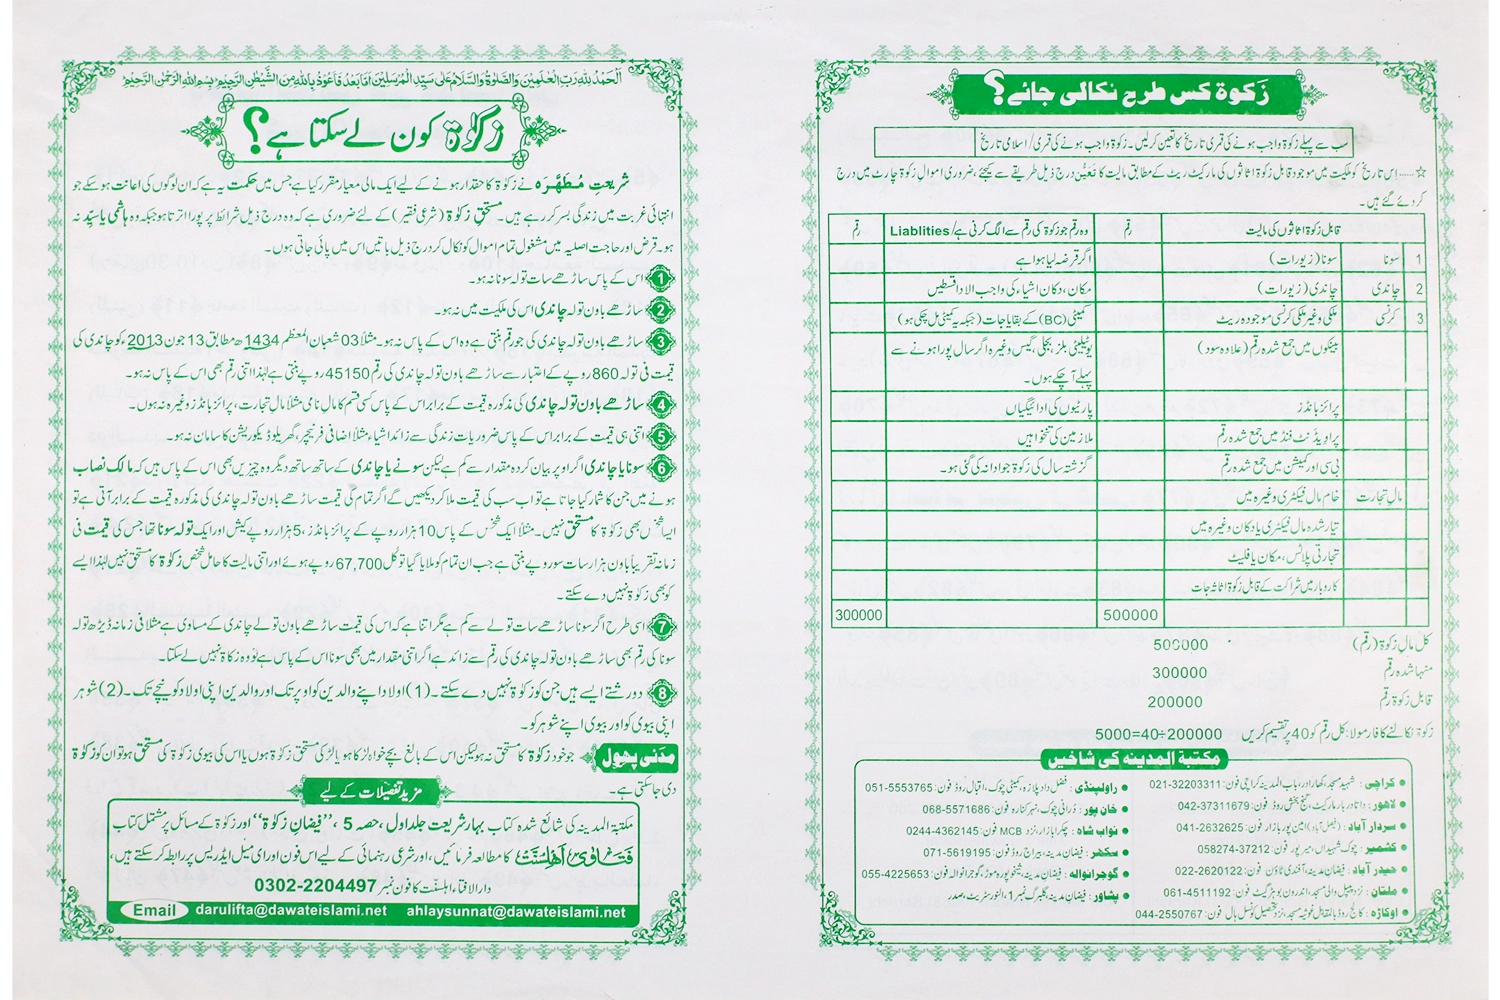 زکوٰۃ کس طرح نکالی جائے؟
سب سے پہلے زکوٰۃ واجب ہونے کی قمری تاریخ کا تعین کرلیں۔ زکوٰۃ واجب ہونے کی قمری/اسلامی تاریخ
☆.....اِس تاریخ کو ملکیت میں موجود قابل زکوٰۃ اثاثوں کی مارکیٹ ریٹ کے مطابق مالیت کا تَعَیُّن درج ذیل طریقے سے کیجئے، ضروری اموالِ زکوٰۃ چارٹ میں درج
کردئے گئے ہیں۔
قابل زکوٰۃ اثاثوں کی مالیت رقم وہ رقم جو زکوٰۃ کی رقم سے الگ کرنی ہے/Liablities رقم
1 سونا سونا(زیورات) اگر قرضہ لیا ہوا ہے
2 چاندی چاندی(زیورات) مکان، دکان اشیاء کی واجب الادا قسطیں
3 کرنسی ملکی وغیر ملکی کرنسی موجودہ ریٹ کمیٹی(BC) کے بقایا جات (جبکہ یہ کمیٹی مل چکی ہو)
بینکوں میں جمع شدہ رقم(علاوہ سود) یوٹیلٹی بلز، بجلی، گیس وغیرہ اگر سال پورا ہونے سے
پہلے آچکے ہوں۔
پرائز بانڈز پارٹیوں کی ادائیگیاں
پراویڈنٹ فنڈ میں جمع شدہ رقم ملازمین کی تنخواہیں
بی سی اور کمیشن میں جمع شدہ رقم گزشتہ سال کی زکوٰۃ جو ادا نہ کی گئی ہو۔
مالِ تجارت خام مال فیکٹری وغیرہ میں
تیار شدہ مال فیکٹری یا دکان وغیرہ میں
تجارتی پلاٹس، مکان یا فلیٹ
کاروبار میں شراکت کے قابل زکوٰۃ اثاثہ جات
500000 300000
کل مال زکوٰۃ (رقم) 500000
منہا شدہ رقم 300000
قابل زکوٰۃ رقم 200000
زکوٰۃ نکالنے کا فارمولا: کل رقم کو 40 پر تقسیم کریں 200000÷40=5000
مکتبۃ المدینہ کی شاخیں
● کراچی : شہید مسجد، کھارادر باب المدینہ کراچی فون: 021-32203311
● لاہور : داتا دربار مارکیٹ، گنج بخش روڈ فون: 042-37311679
● سردار آباد : (فیصل آباد) امین پور بازار فون: 041-2632625
● کشمیر : چوک شہیداں، میرپور فون: 058274-37212
● حیدر آباد : فیضانِ مدینہ، آفندی ٹاؤن فون: 022-2620122
● ملتان : نزد پیپل والی مسجد، اندرون بوہڑ گیٹ فون: 061-4511192
● اوکاڑہ : کالج روڈ بالمقابل غوثیہ مسجد، نزد تحصیل کونسل ہال فون: 044-2550767
● راولپنڈی : فضل داد پلازہ، کمیٹی چوک، اقبال روڈ فون: 051-5553765
● خان پور : دُرانی چوک، نہر کنارہ فون: 068-5571686
● نواب شاہ : چکرا بازار، نزد MCB فون: 0244-4362145
● سکھر : فیضانِ مدینہ، بیراج روڈ فون: 071-5619195
● گوجرانوالہ : فیضانِ مدینہ، شیخوپورہ موڑ، گوجرانوالہ فون: 055-4225653
● پشاور : فیضانِ مدینہ، گلبرگ نمبر 1، النور سٹریٹ، صدر
اَلْحَمْدُ لِلّٰہِ رَبِّ الْعٰلَمِیْنَ وَالصَّلٰوۃُ وَالسَّلَامُ عَلٰی سَیِّدِ الْمُرْسَلِیْنَ اَمَّا بَعْدُ فَاَعُوْذُ بِاللّٰہِ مِنَ الشَّیْطٰنِ الرَّجِیْمِ بِسْمِ اللّٰہِ الرَّحْمٰنِ الرَّحِیْمِ
زکوٰۃ کون لے سکتا ہے؟
شریعتِ مُطَہَّرہ نے زکوٰۃ کا حقدار ہونے کے لیے ایک مالی معیار مقرر کیا ہے جس میں حکمت یہ ہے کہ ان لوگوں کی اعانت ہوسکے جو
انتہائی غربت میں زندگی بسر کر رہے ہیں۔ مستحقِ زکوٰۃ (شرعی فقیر) کے لئے ضروری ہے کہ وہ درج ذیل شرائط پر پورا اترتا ہو جبکہ وہ ہاشمی یا سیّد نہ
ہو۔ قرض اور حاجت اصلیہ میں مشغول تمام اموال کو نکال کر درج ذیل باتیں اس میں پائی جاتی ہوں۔
1 اس کے پاس ساڑھے سات تولہ سونا نہ ہو۔
2 ساڑھے باون تولہ چاندی اس کی ملکیت میں نہ ہو۔
3 ساڑھے باون تولہ چاندی کی جو رقم بنتی ہے وہ اس کے پاس نہ ہو۔ مثلاً 03 شعبان المعظم 1434ھ مطابق 13 جون 2013ء کو چاندی کی
قیمت فی تولہ 860 روپے کے اعتبار سے ساڑھے باون تولہ چاندی کی رقم 45150 روپے بنتی ہے لہٰذا اتنی رقم بھی اس کے پاس نہ ہو۔
4 ساڑھے باون تولہ چاندی کی مذکورہ قیمت کے برابر اس کے پاس کسی قسم کا مالِ نامی مثلاً مالِ تجارت، پرائز بانڈز وغیرہ نہ ہوں۔
5 اتنی ہی قیمت کے برابر اس کے پاس ضروریات زندگی سے زائد اشیاء مثلاً اضافی فرنیچر، گھریلو ڈیکوریشن کا سامان نہ ہو۔
6 سونا یا چاندی اگر اوپر بیان کردہ مقدار سے کم ہے لیکن سونے یا چاندی کے ساتھ ساتھ دیگر وہ چیزیں بھی اس کے پاس ہیں کہ مالک نصاب
ہونے میں جن کا شمار کیا جاتا ہے تو اب سب کی قیمت ملا کر دیکھیں گے اگر تمام کی قیمت ساڑھے باون تولہ چاندی کی مذکورہ قیمت کے برابر آتی ہے تو
ایسا شخص بھی زکوٰۃ کا مستحق نہیں۔ مثلاً ایک شخص کے پاس 10 ہزار روپے کے پرائز بانڈز، 5 ہزار روپے کیش اور ایک تولہ سونا تھا جس کی قیمت فی
زمانہ تقریباً باون ہزار سات سو روپے بنتی ہے جب ان تمام کو ملایا گیا تو کل 67,700 روپے ہوئے اور اتنی مالیت کا حامل شخص زکوٰۃ کا مستحق نہیں لہٰذا ایسے
کو بھی زکوٰۃ نہیں دے سکتے۔
7 اسی طرح اگر سونا ساڑھے سات تولے سے کم ہے مگر اتنا ہے کہ اس کی قیمت ساڑھے باون تولے چاندی کے مساوی ہے مثلاً فی زمانہ ڈیڑھ تولہ
سونا کی رقم بھی ساڑھے باون تولہ چاندی کی رقم سے زائد ہے اگر اتنی مقدار میں بھی سونا اس کے پاس ہے تو وہ زکاۃ نہیں لے سکتا۔
8 دو رشتے ایسے ہیں جن کو زکوٰۃ نہیں دے سکتے۔ (1) اولاد اپنے والدین کو اوپر تک اور والدین اپنی اولاد کو نیچے تک۔ (2) شوہر
اپنی بیوی کو اور بیوی اپنے شوہر کو۔
مدنی پھول جو خود زکوٰۃ کا مستحق نہ ہو لیکن اس کے بالغ بچے خواہ لڑکا ہو یا لڑکی مستحق زکوٰۃ ہوں یا اس کی بیوی زکوٰۃ کی مستحق ہو تو ان کو زکوٰۃ
دی جاسکتی ہے۔
مزید تفصیلات کے لیے
مکتبۃ المدینہ کی شائع شدہ کتاب بہارِ شریعت جلد اول، حصہ 5، ”فیضانِ زکوٰۃ“ اور زکوٰۃ کے مسائل پر مشتمل کتاب
فتاویٰ اہلسنّت کا مطالعہ فرمائیں، اور شرعی رہنمائی کے لیے اس فون اور ای میل ایڈریس پر رابطہ کرسکتے ہیں،
دارالافتاء اہلسنت کا فون نمبر 0302-2204497
Email darulifta@dawateislami.net ahlaysunnat@dawateislami.net